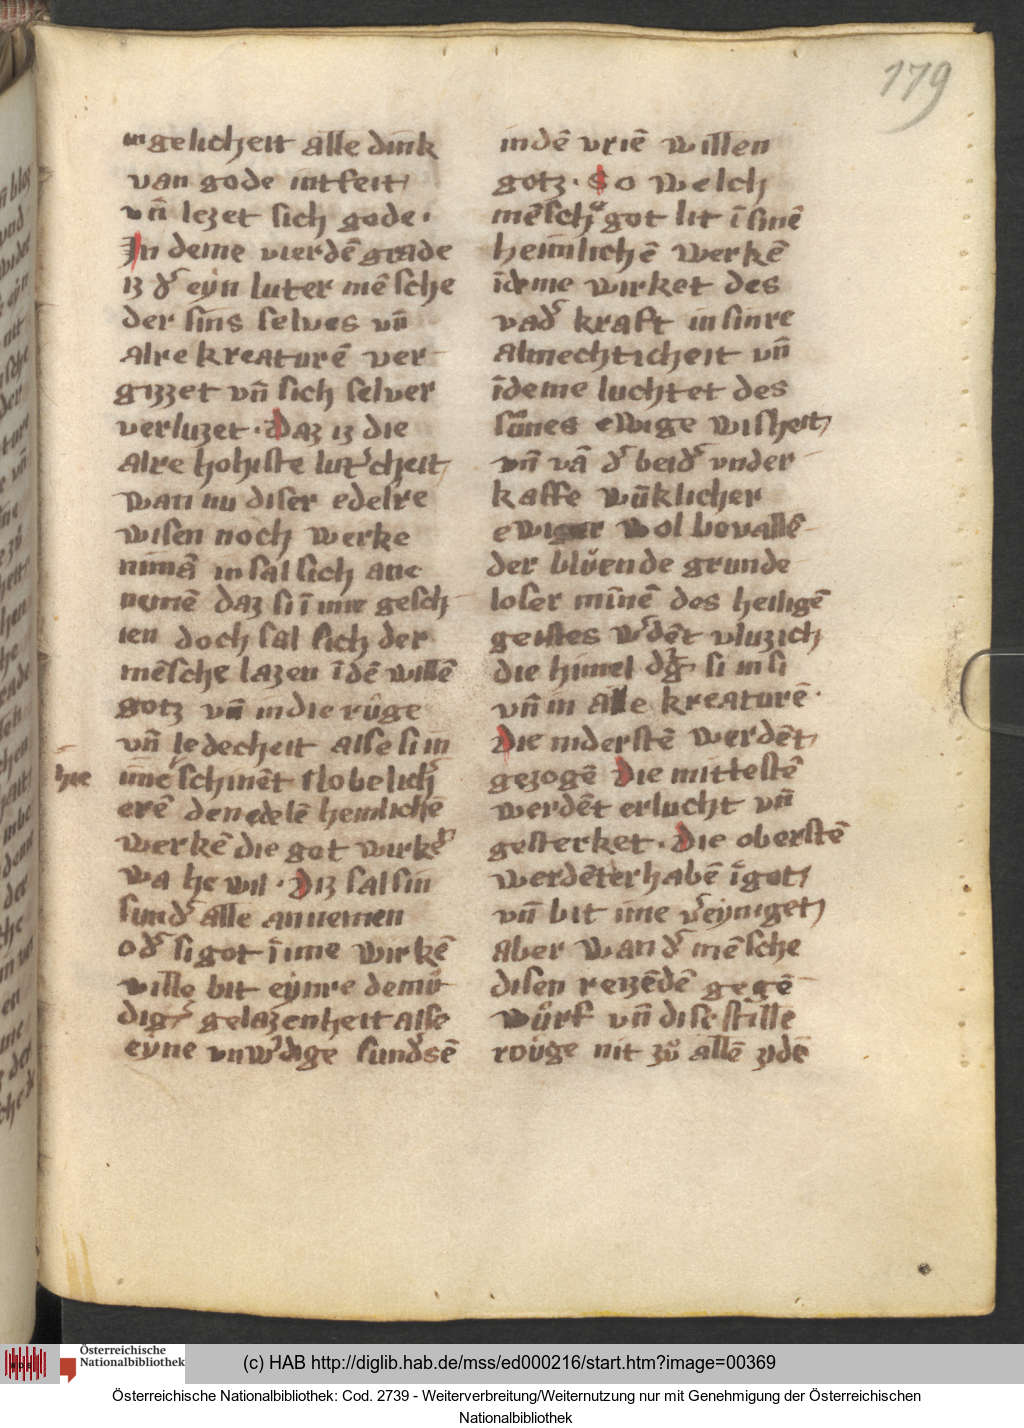 179
ingelicheit alle dink
van gode intfeit
vn̄ lezet sich gode·
In deme vierdē grade
iz dˢ eyn luter mēsche
der sins selves vn̄
alre kreaturē ver
gizzet vn̄ sich selver
verluzet· Daz iz die
alre hohiste lutˢcheit
wan nu diser edelre
wisen noch werke
nimā in sal sich ane
nemē daz si ī ime gesch
ien doch sal sich der
mēsche lazen ī dē willē
gotz vn̄ in die růge
vn̄ ledecheit alse si in
hie
ime schinēt
erē den edelē heimlichē
werkē die got wirkē
wa he wil· Diz sal sin
sundˢ alle annemen
odˢ si got ī ime wirkē
wille bit eynre demů
digˢ gelazenheit alse
eyne vnwˢdige sundˢsē
in dē vriē willen
gotz· So welch
mēsch got lit ī sinē
heimlichē werkē
ī deme wirket des
vadˢ kraft in sinre
almechticheit vn̄
ī deme luchtet des
sůnes ewige wisheit
vn̄ vā dˢ beidˢ vnder
kaffe
ewiger wol bevalle
der blůende grunde
loser minnē des heiligē
geistes wˢdēt vluzich
die himel si in si
vn̄ in alle kreaturē·
Die niderstē werdēt
gezogē Die mittestē
werdēt erlucht vn̄
gesterket· Die oberstē
werdēt erhabē ī got
vn̄ bit ime vˢeyniget
aber wan dˢ mēsche
disen reizēdē gegē
wůrf vn̄ dise stille
rouge nit zů allē zidē
Österreichische
Nationalbibliothek
(c) HAB http://diglib.hab.de/mss/ed000216/start.htm?image=00369
Österreichische Nationalbibliothek: Cod. 2739 - Weiterverbreitung/Weiternutzung nur mit Genehmigung der Österreichischen
Nationalbibliothek